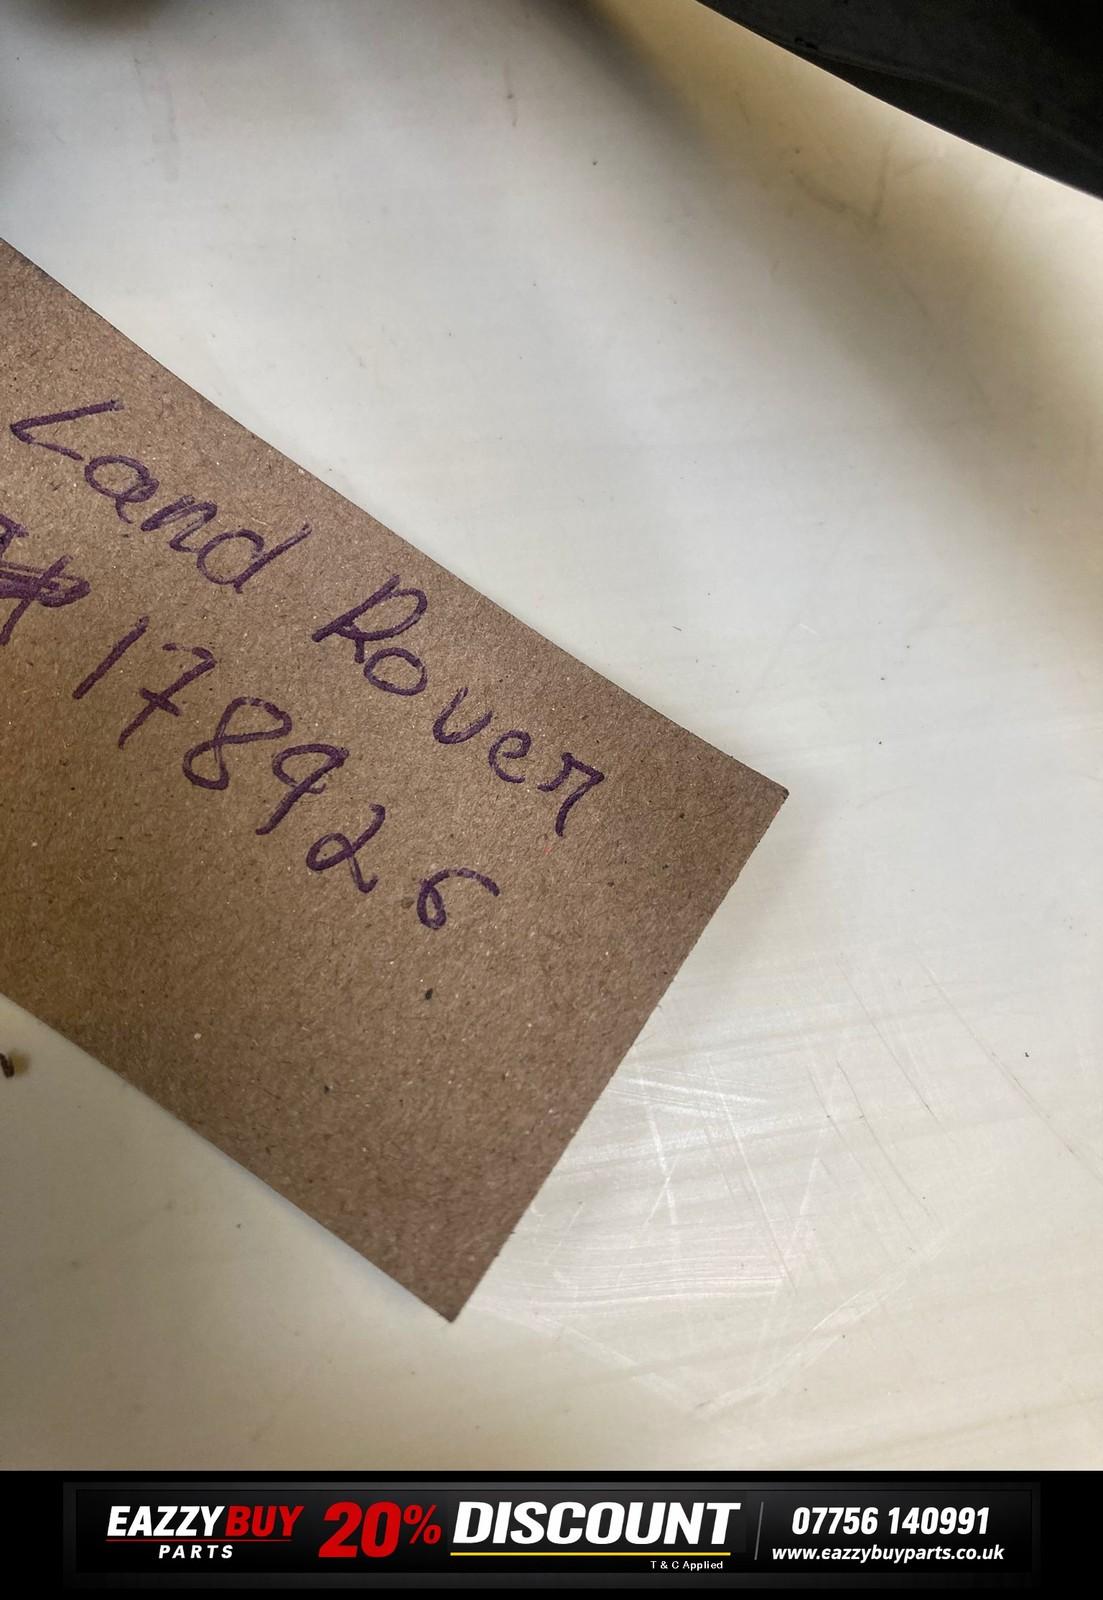 Land Rover
178926
EAZZYBUY
PARTS
20% DISCOUNT
T & C Applied
07756 140991
www.eazzybuyparts.co.uk